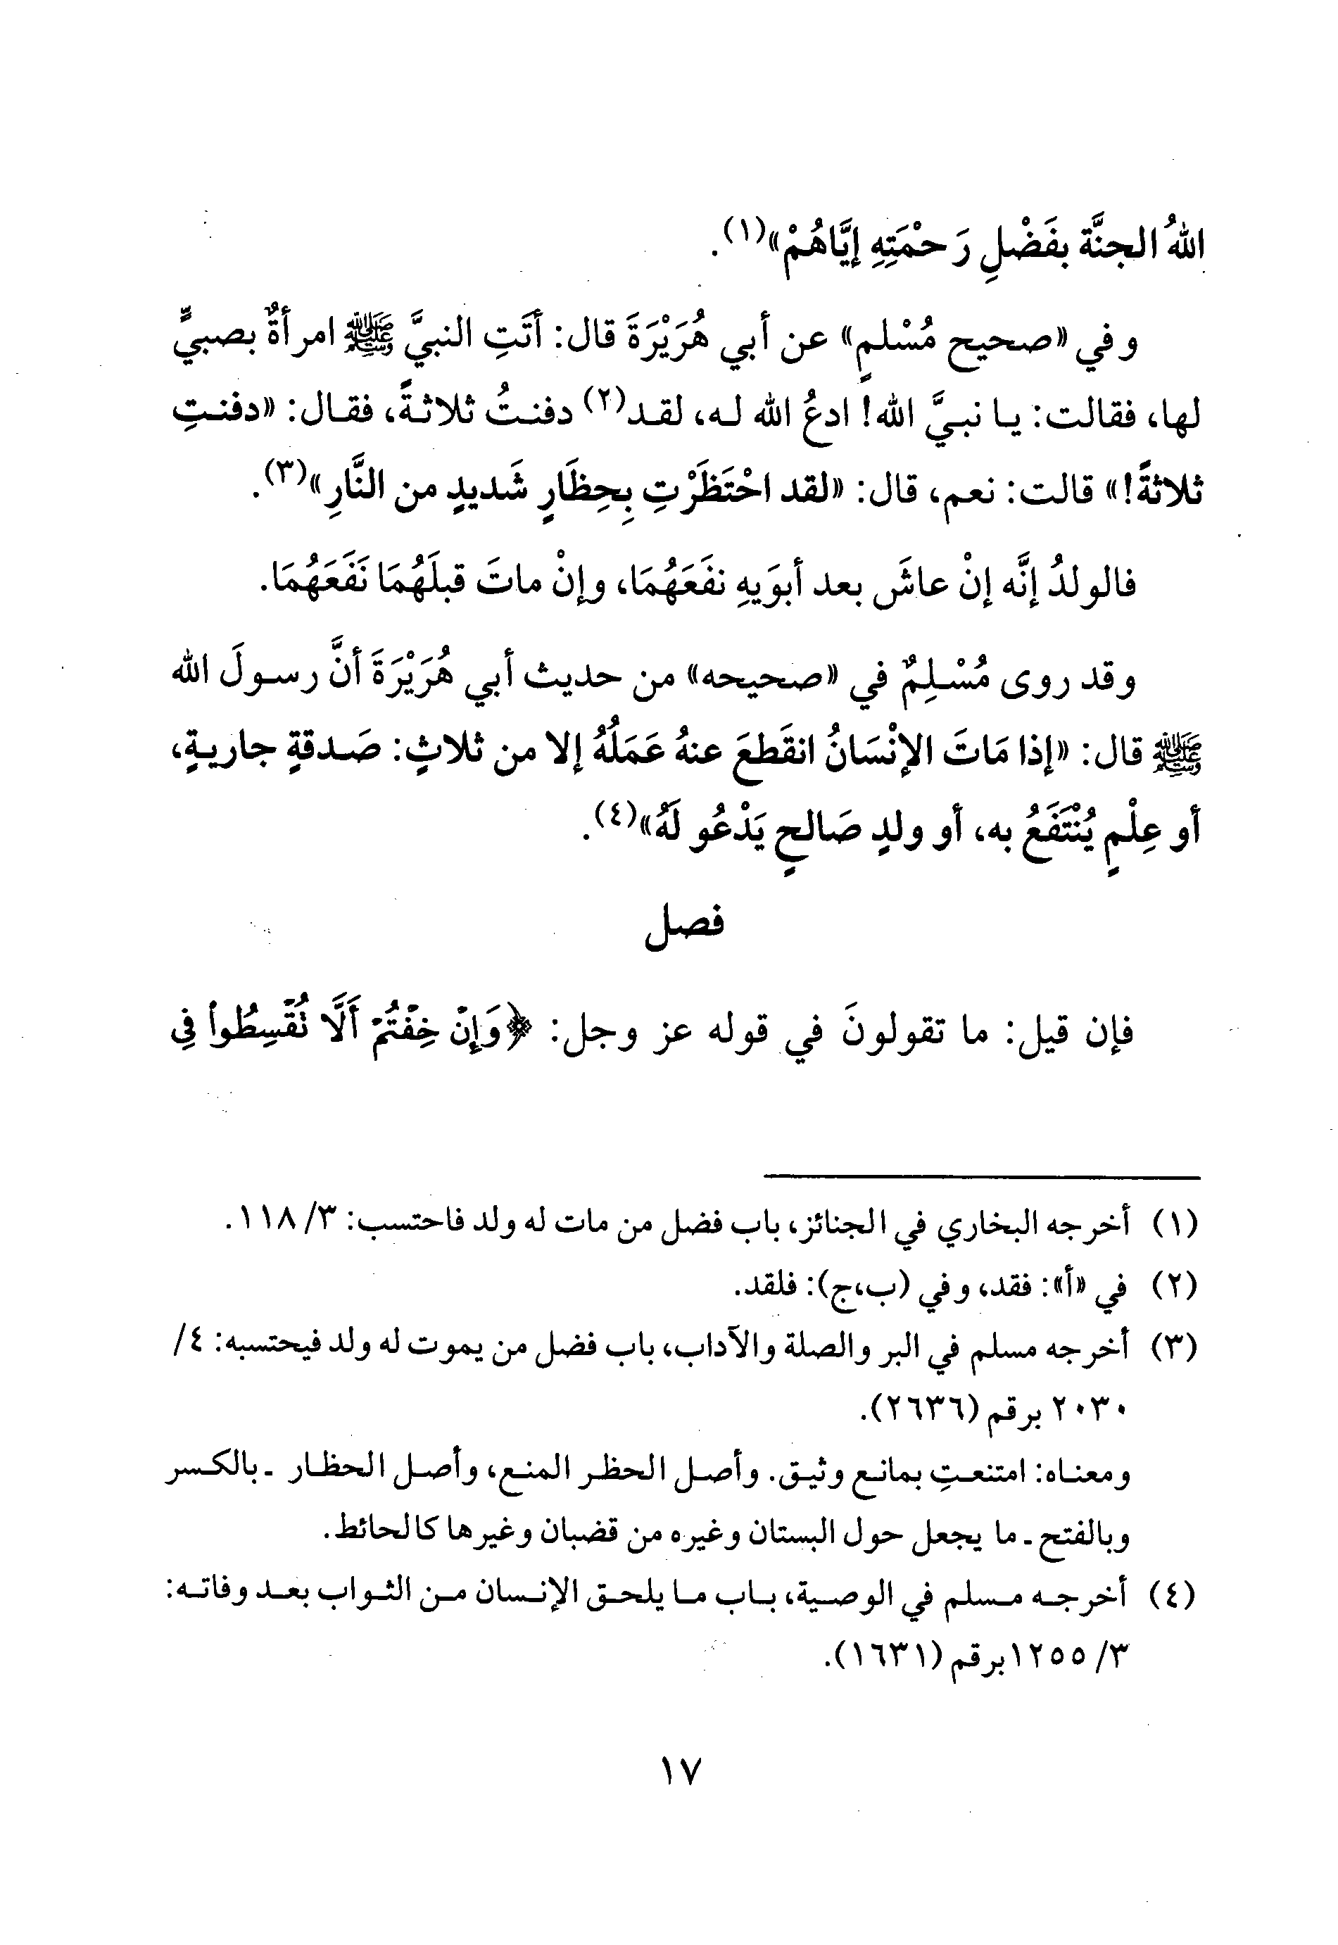 اللهُ الجنَّة بفَضْلِ رَحْمَتِهِ إيَّاهُمْ»(١).
وفي «صحيح مُسْلمٍ» عن أبي هُرَيْرَةَ قال: أتَتِ النبيَّ ﷺ امرأةٌ بصبيٍّ
لها، فقالت: يا نبيَّ الله! ادعُ الله له، لقد(٢) دفنتُ ثلاثةً، فقال: «دفنتِ
ثلاثةً!» قالت: نعم، قال: «لقد احْتَظَرْتِ بِحِظَارٍ شَديدٍ من النَّارِ»(٣).
فالولدُ إنَّه إنْ عاشَ بعد أبوَيهِ نفَعَهُمَا، وإنْ ماتَ قبلَهُمَا نَفَعَهُمَا.
وقد روى مُسْلِمٌ في «صحيحه» من حديث أبي هُرَيْرَةَ أنَّ رسولَ الله
ﷺ قال: «إذا مَاتَ الإنْسَانُ انقَطعَ عنهُ عَمَلُهُ إلا من ثلاثٍ: صَدقةٍ جاريةٍ،
أو عِلْمٍ يُنْتَفَعُ به، أو ولدٍ صَالحٍ يَدْعُو لَهُ»(٤).
فصل
فإن قيل: ما تقولونَ في قوله عز وجل: ﴿وَإِنْ خِفْتُمْ أَلَّا تُقْسِطُوا فِي
(١) أخرجه البخاري في الجنائز، باب فضل من مات له ولد فاحتسب: ٣/ ١١٨.
(٢) في «أ»: فقد، وفي (ب،ج): فلقد.
(٣) أخرجه مسلم في البر والصلة والآداب، باب فضل من يموت له ولد فيحتسبه: ٤/
٢٠٣٠ برقم (٢٦٣٦).
ومعناه: امتنعتِ بمانع وثيق. وأصل الحظر المنع، وأصل الحظار - بالكسر
وبالفتح - ما يجعل حول البستان وغيره من قضبان وغيرها كالحائط.
(٤) أخرجه مسلم في الوصية، باب ما يلحق الإنسان من الثواب بعد وفاته:
٣/ ١٢٥٥ برقم (١٦٣١).
١٧